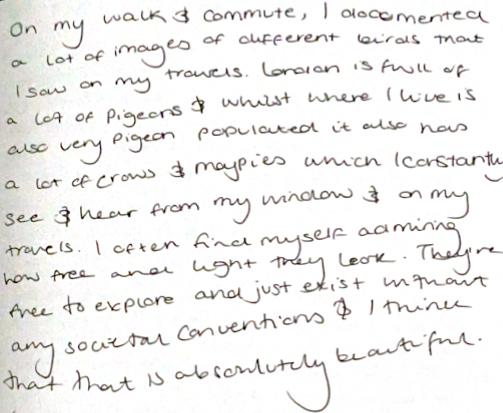 On my walk & commute, I documented
a lot of images of different birds that
I saw on my travels. London is full of
a lot of pigeons & whilst where I live is
also very pigeon populated it also has
a lot of crows & magpies which I constantly
see & hear from my window & on my
travels. I often find myself admiring
how free and light they look. They're
free to explore and just exist without
any societal conventions & I think
that that is absolutely beautiful.